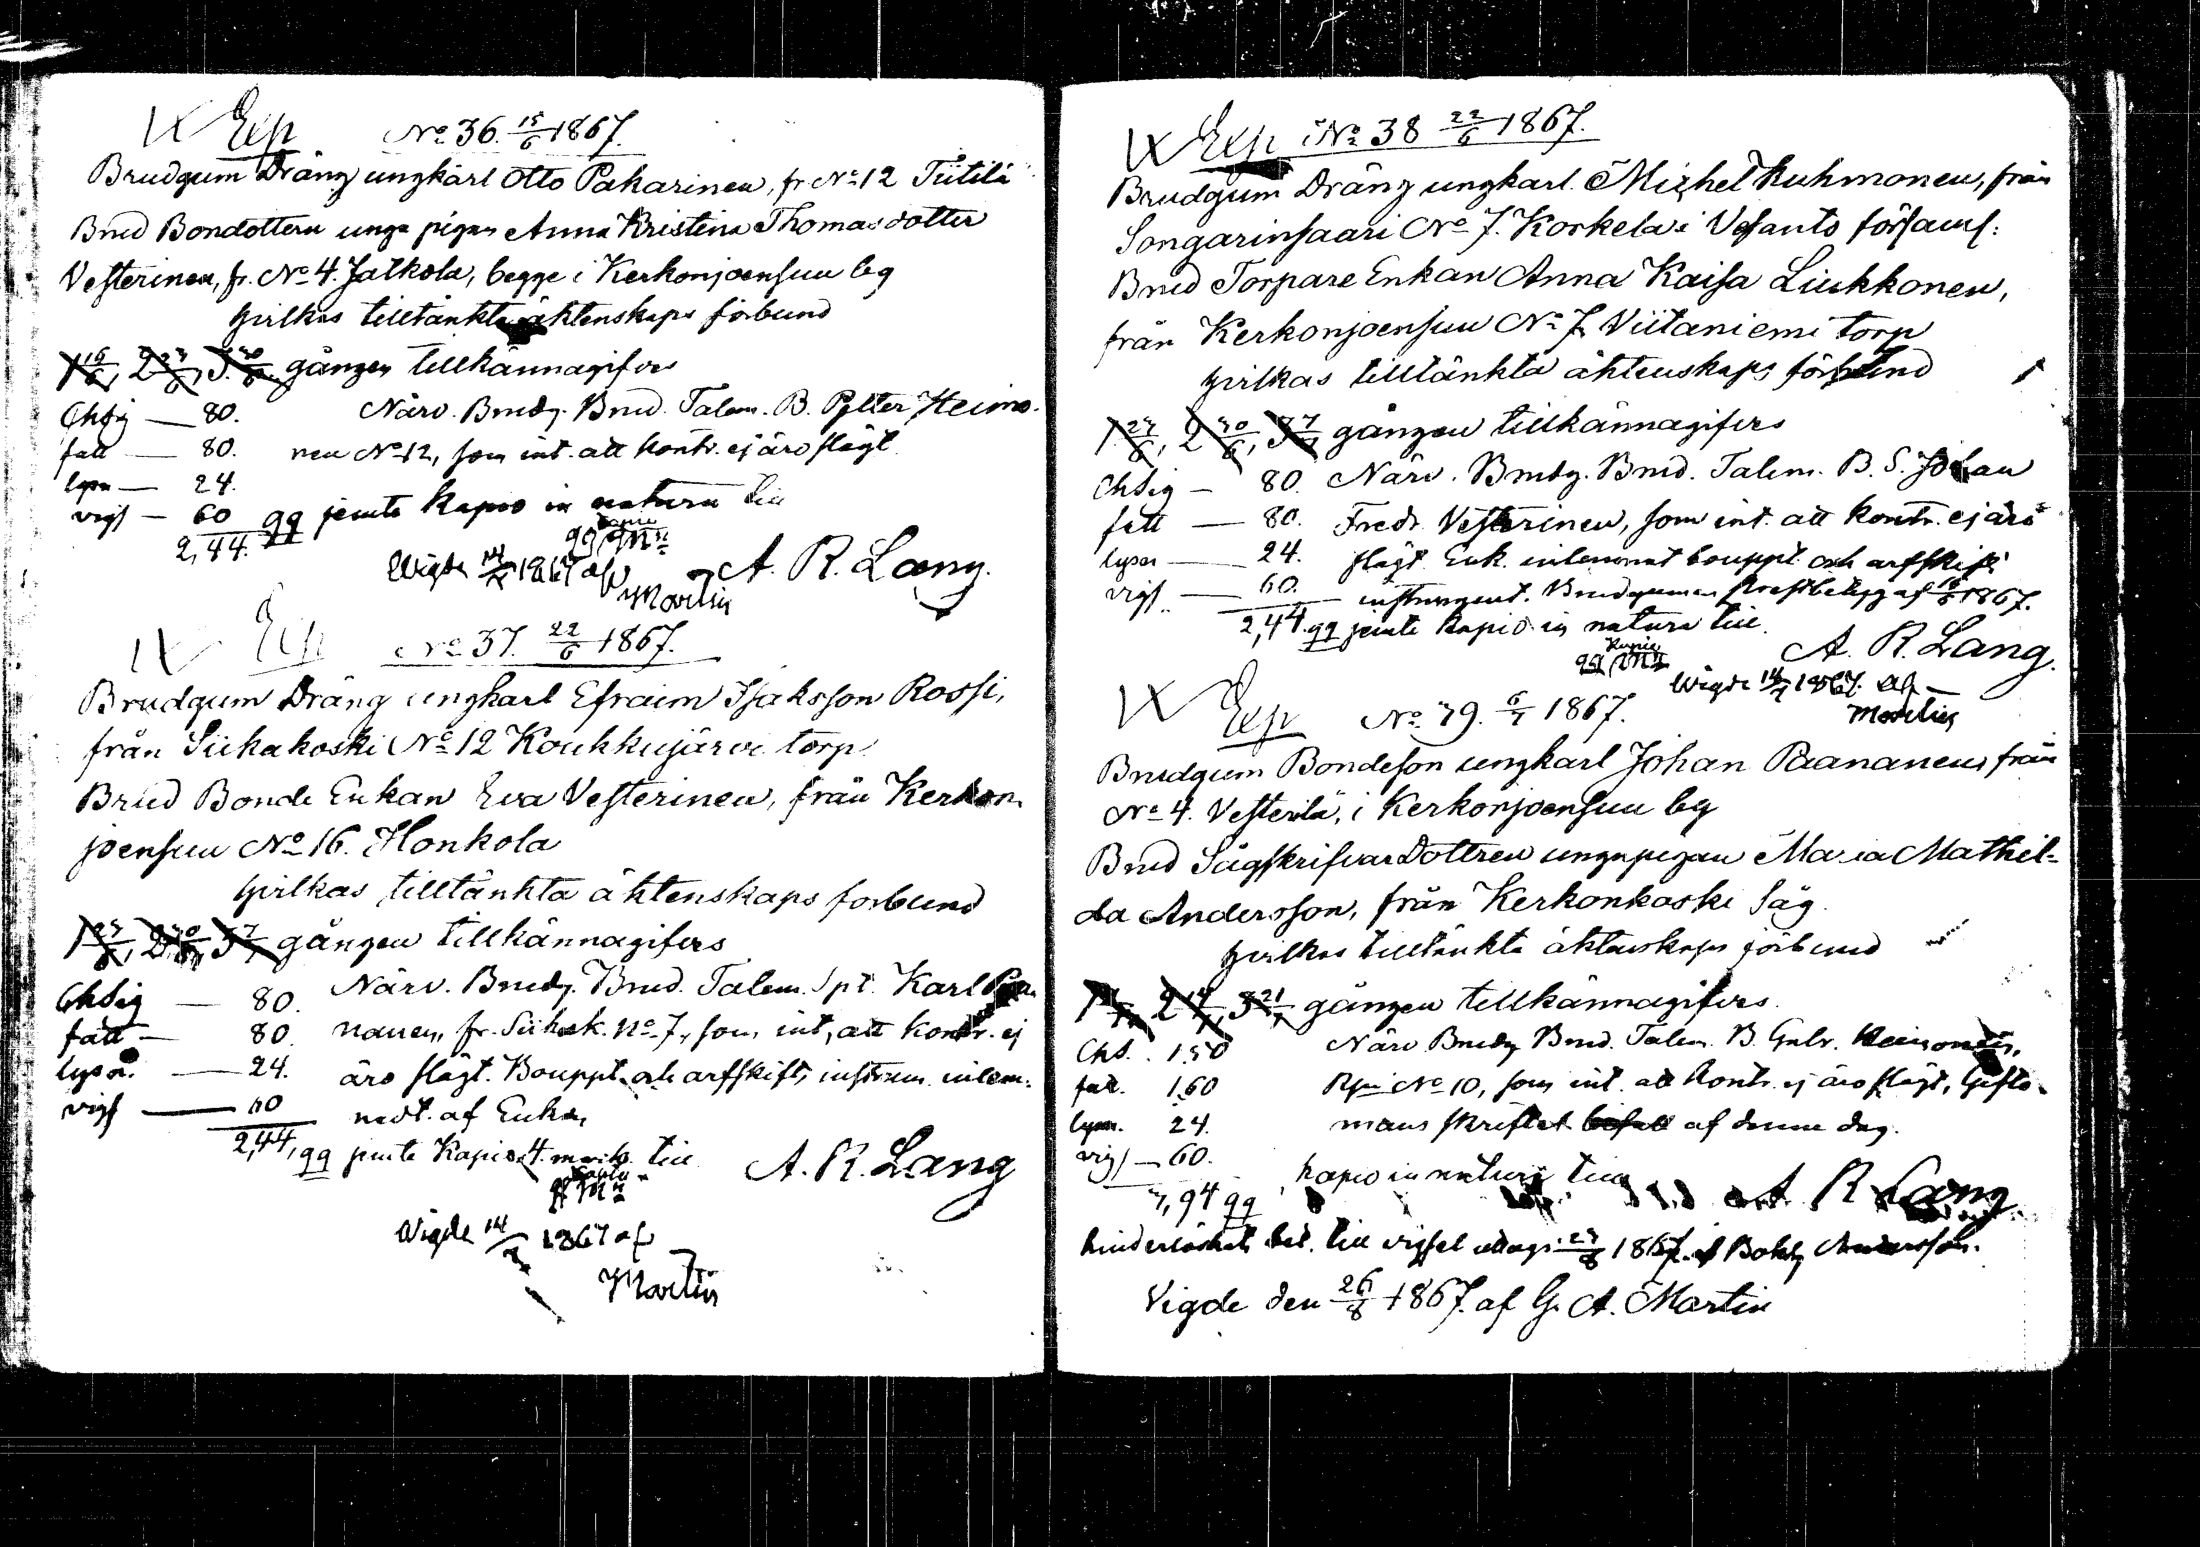 Exp No 36. 15/6 1867.
Brudgum Dräng ungkarl Otto Pakarinen, fr No 12 Tiitilä
Brud Bondottern unga pigan Anna Kristina Thomasdotter
Vesterinen, fr. No 4. Jalkola, begge i Kerkonjoensuu by
hvilkas tilltänkta äktenskaps förbund
1 16/6, 2 23/6, 3 30/6 gången tillkännagifves
Chsig — 80. Närv. Brudg. Brud. Talem. B. Petter Heimo-
fatt — 80. nen No 12, som int. att kontr. ej äro slägt
lysn — 24.
vigs — 60 qq jemte Kapio in natura till
2,44.
Wigde 14/7 1867 af Martin A. R. Lang.
Exp No 37. 22/6 1867.
Brudgum Dräng ungkarl Efraim Isaksson Rossi,
från Siikakoski No 12 Koukkujärvi torp
Brud Bonde Enkan Eva Vesterinen, från Kerkon
joensuu No 16. Honkola
hvilkas tilltänkta äktenskaps forbund
1 23/6, 2 30/6, 3 7/7 gången tillkännagifves
Chsig — 80. Närv. Brudg. Brud. Talem. Spt. Karl
fatt — 80. nanen, fr. Siikak. No 7, som int, att kontr. ej
lysn. — 24. äro slägt. Bouppt. och arfskifts instrum. inlem-
vigs — 60 nadt. af Enkan
2,44, qq jemte Kapio 4. mark till A. R. Lang
Wigde 14/7 1867 af
Martin
Exp No 38 22/6 1867.
Brudgum Dräng ungkarl. Michel Ruhmonen, från
Songarinsaari No 7. Korkela i Vesanto församl:
Brud Torpare Enkan Anna Kaisa Liukkonen,
från Kerkonjoensuu No 7 Viitaniemi torp
hvilkas tilltänkta äktenskaps förbund
1 23/6, 2 30/6, 3 7/7 gången tillkännagifves
Chsig — 80. Närv. Brudg. Brud. Talem. B. S. Johan
fatt — 80. Fredr. Vesterinen, som int. att kontr. ej äro
lysn — 24. slägt. Enk. inlemnat bouppt. och arfskifts
vigs — 60. instrument. Brudgumen Prestbetyg af 1867.
2,44 qq jemte Kapio in natura till
A. R. Lang.
Wigde 14/7 1867. af
Martin
Exp No 39. 6/7 1867.
Brudgum Bondeson ungkarl Johan Paananen från
No 4. Vesterilä, i Kerkonjoensuu by
Brud Sågskrifvar Dottren unga pigan Maria Mathil-
da Andersson, från Kerkonkoski Såg
hvilkas tilltänkta äktenskaps förbund
1 7/7, 2 14/7, 3 21/7 gången tillkännagifves.
Chs. 1.50 Närv. Brudg Brud. Talem. B. Gabr. Heimonen,
fatt. 1.60 No 10, som int. att kontr. ej äro slägt, Gifto-
lysn. 24. mans skriftet af denne dag.
vigs — 60.
3,94 qq kapio in natura till A. R. Lang
hinderlöshets bet. till vigsel utdagi 1867. af Bokh Andersson.
Vigde den 26/8 1867. af G. A. Martin